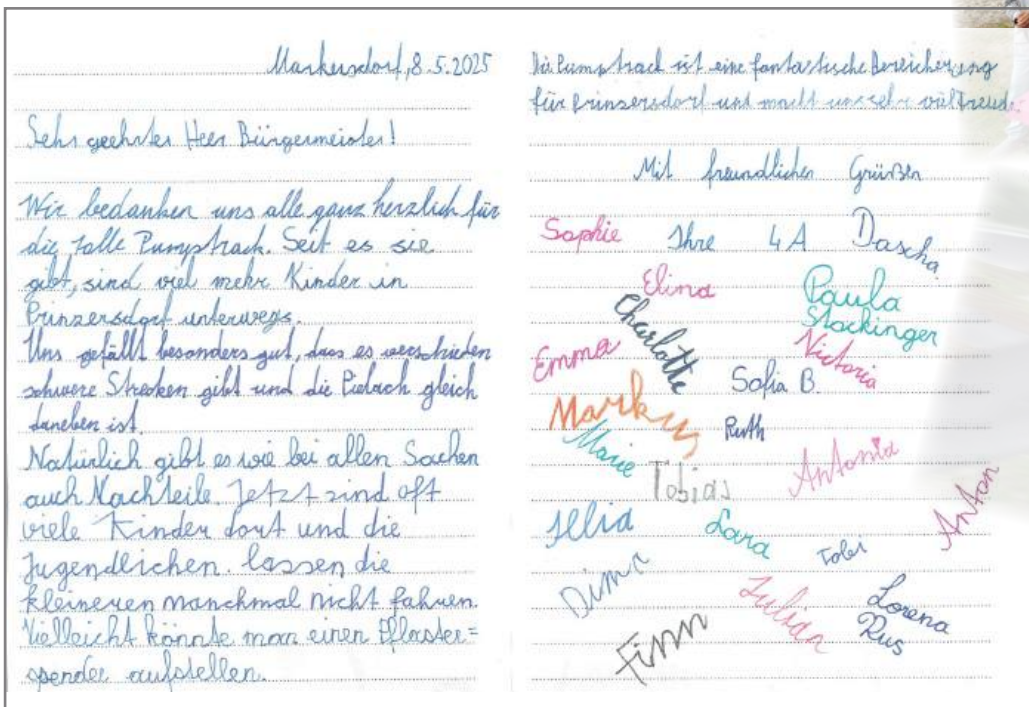 Markersdorf, 8.5.2025
Sehr geehrter Herr Bürgermeister!
Wir bedanken uns alle ganz herzlich für
die tolle Pumptrack. Seit es sie
gibt, sind viel mehr Kinder in
Prinzersdorf unterwegs.
Uns gefällt besonders gut, dass es verschieden
schwere Strecken gibt und die Pielach gleich
daneben ist.
Natürlich gibt es wie bei allen Sachen
auch Nachteile. Jetzt sind oft
viele Kinder dort und die
Jugendlichen lassen die
kleineren manchmal nicht fahren.
Vielleicht könnte man einen Pflaster=
spender aufstellen.
Die Pumptrack ist eine fantastische Bereicherung
für Prinzersdorf und macht uns sehr viel Freude.
Mit freundlichen Grüßen
Sophie Ihre 4A Dascha
Elina Paula
Stockinger
Charlotte
Emma Victoria
Sofia B.
Markus Ruth
Marie
Tobias Antonia
Anton
Illia Lara
Dima
Julian Lorena
Rus
Finn